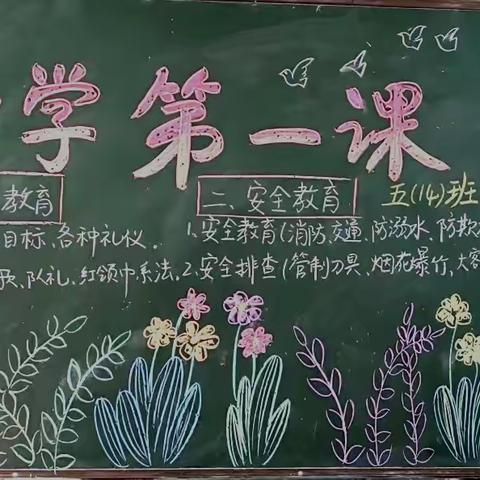 学第一课
教育
二、安全教育
五(14)班
目标、各种礼仪。
1、安全教育(消防、交通、防溺水、防欺
队礼、红领巾系法。
2、安全排查(管制刀具、烟花爆竹、大容